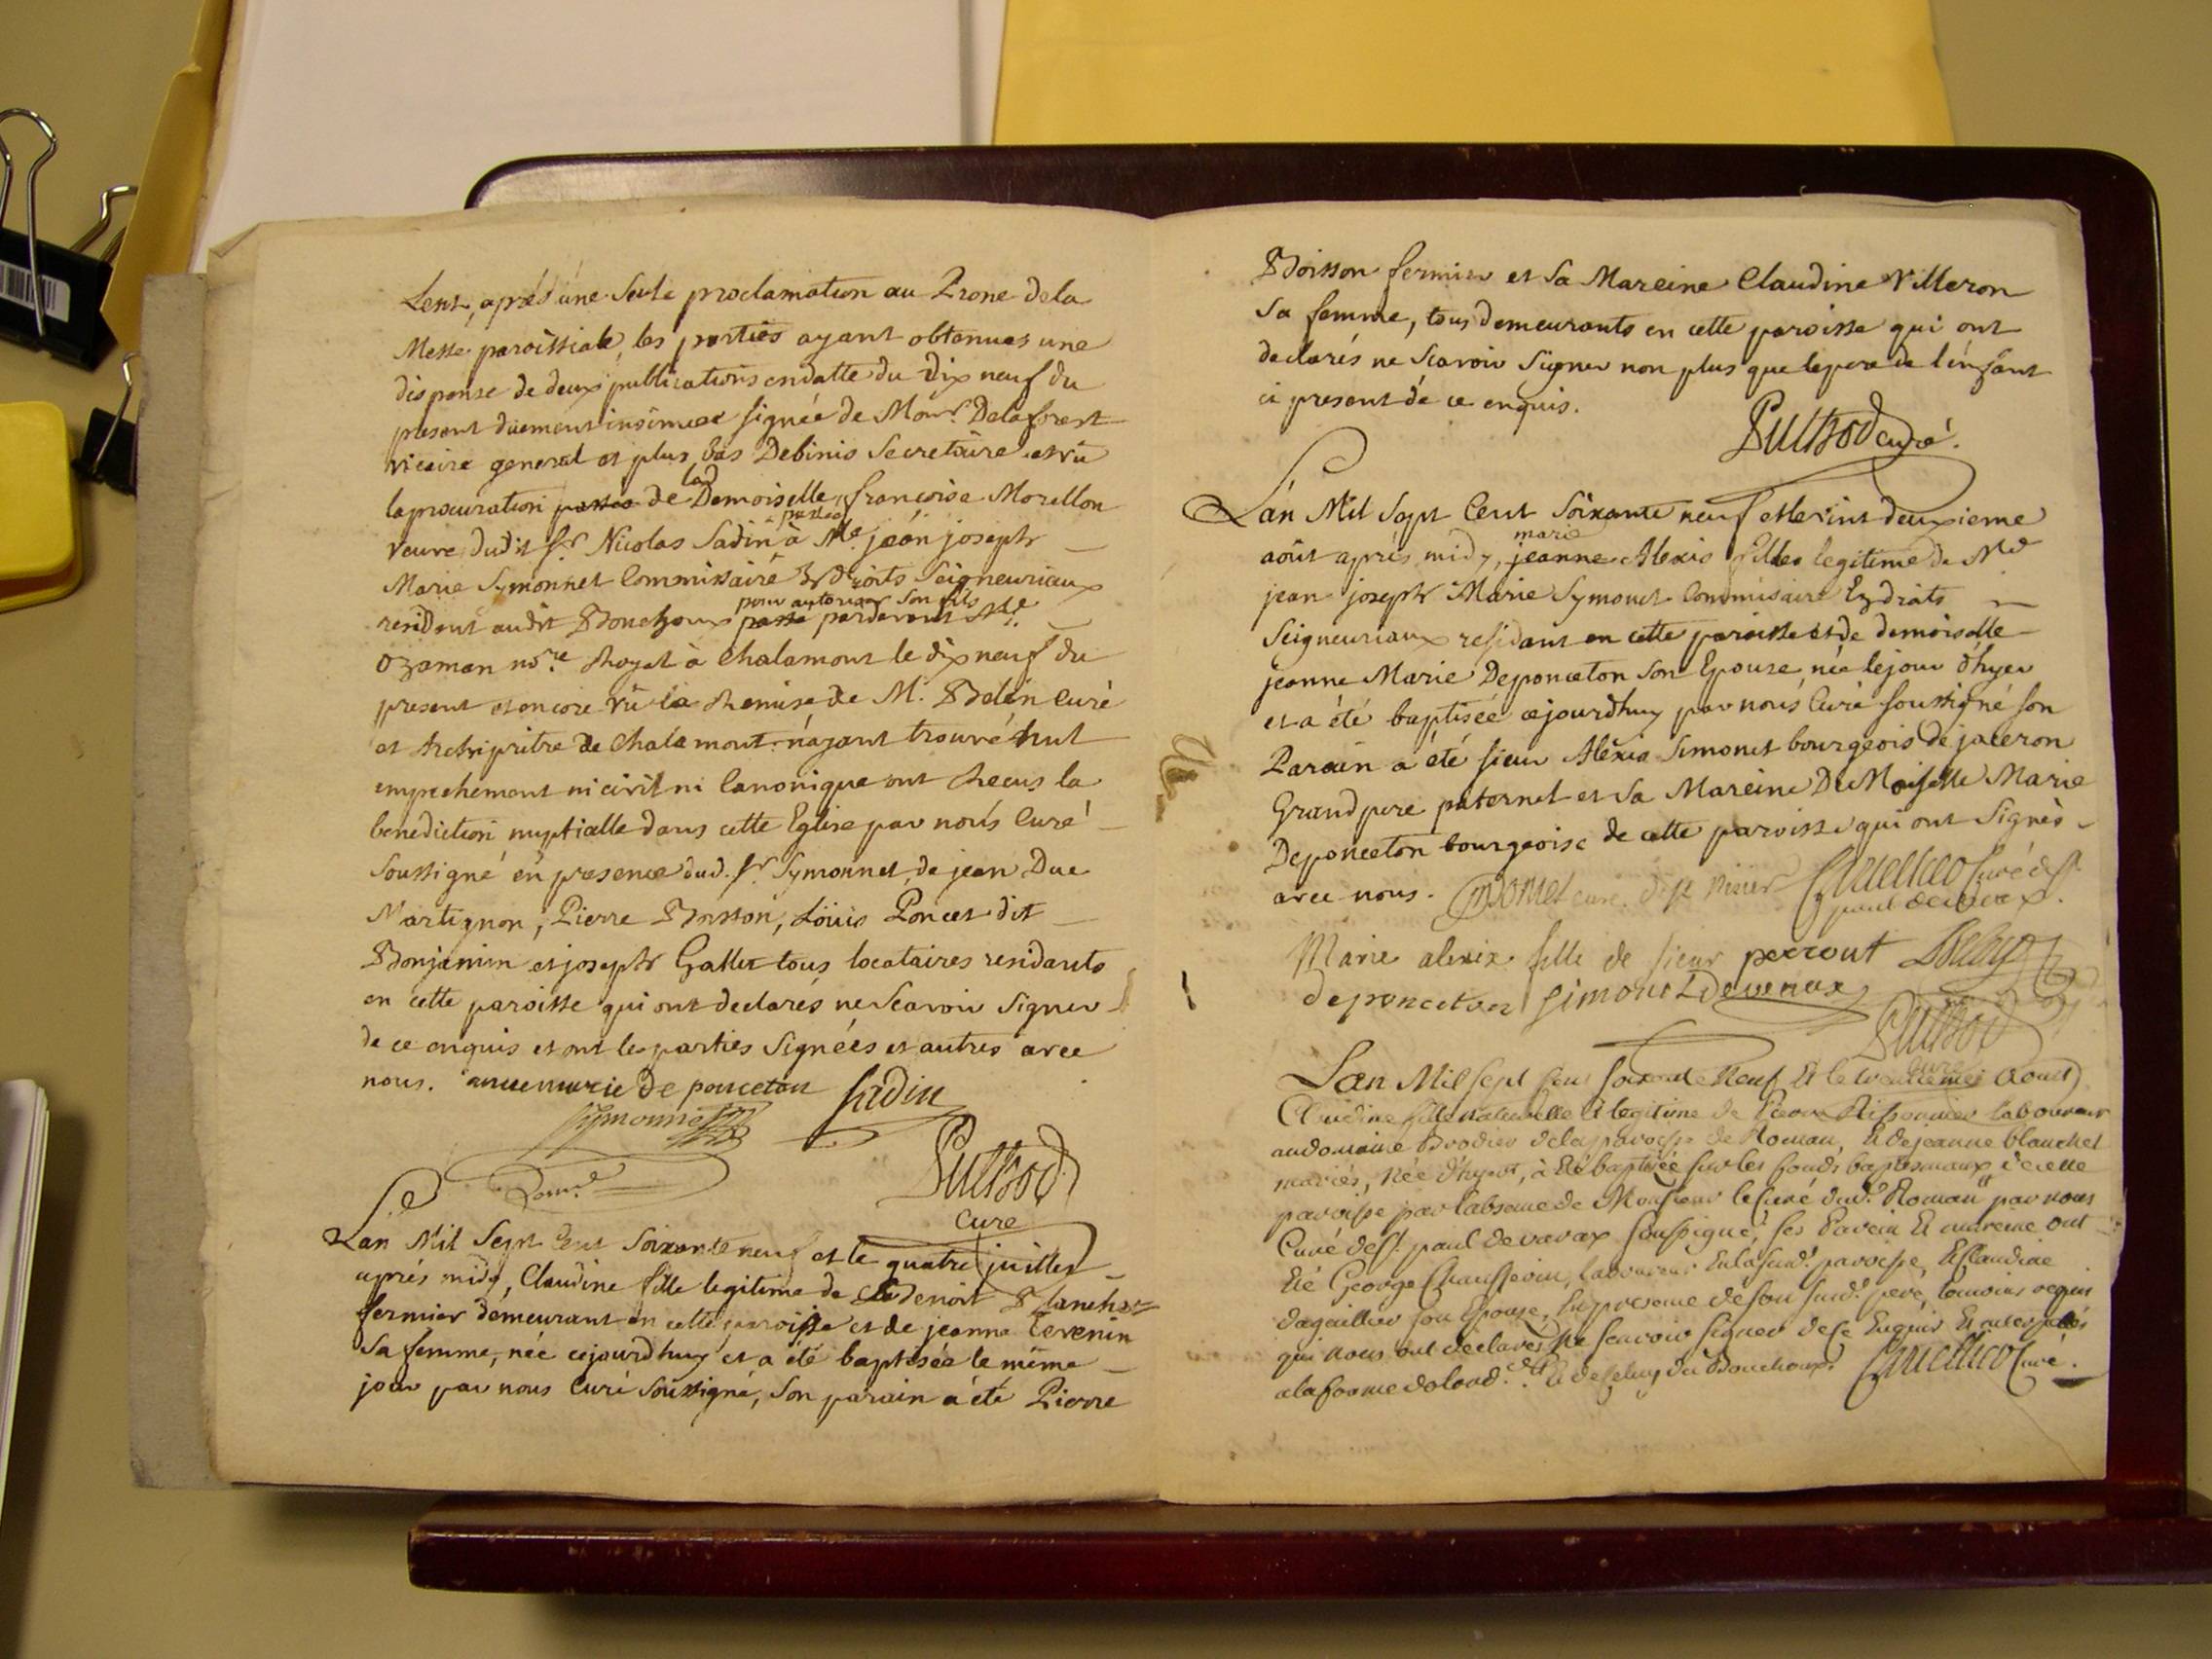 Lent, aprés une Seule proclamation au Prone dela
Messe paroissiale, les parties ayant obtenues une
dispense de deux publications en datte du dix neuf du
present duement insinuée signée de Monr. Delaforest
vicaire general et plus bas Debinis Secretaire et vû
la procuration passée de lad Demoiselle françoise Morellon
veuve dudit sr Nicolas Sadin passée à Me jean joseph
Marie Symonnet Commissaire Es droits Seigneuriaux
residant audit Bouchoux pour autoriser son fils passé pardevant Me
Ozaman nore Royal à Chalamont le dix neuf du
present et encore vû la Remise de M. Belin curé
et Archiprêtre de Chalamont n'ayant trouvé nul
empechement ni civil ni Canonique ont Recus la
benediction nuptialle dans cette Eglise par nous Curé
soussigné en presence dud. sr Symonnet, de jean Duc
Martignon, Pierre Boisson, Loüis Poncet dit
Bonjamin et joseph Gallet tous locataires residants
en cette paroisse qui ont declarés ne Scavoir Signer
de ce enquis et ont les parties Signées et autres avec
nous. anne marie De ponceton Sadin
Symonnet
Puthod
curé
L'an Mil Sept Cent Soixante neuf et le quatre juillet
aprés midy, Claudine fille legitime de Benoit Blanchet
fermier demeurant en cette paroisse et de jeanne Tevenin
Sa femme, née cejourdhuy et a été baptisée le même
jour par nous Curé Soussigné, Son parain a été Pierre
Boisson fermier et Sa Mareine Claudine Villeron
Sa femme, tous demeurants en cette paroisse qui ont
declarés ne Scavoir Signer non plus que le pere de l'enfant
ci present de ce enquis.
Puthod curé.
L'an Mil Sept Cent Soixante neuf et le vint deuxieme
août aprés midy, jeanne marie Alexis fille legitime de Me
jean joseph Marie Symonet Commissaire Es droits
Seigneuriaux residant en cette paroisse et de demoiselle
jeanne Marie Deponceton Son Epouse, née le jour d'hyer
et a été baptisée cejourdhuy par nous Curé soussigné son
Parain a été sieur Alexis Simonet bourgeois de jaceron
Grand pere paternel et Sa Mareine DeMoiselle Marie
Deponceton bourgeoise de cette paroisse qui ont Signés
avec nous. curé de st Curé de st
paul de varax.
Marie alexix fille de sieur perrout
deponceton Simonet Devenax
Puthod
curé
L'an Mil Sept Cent Soixante Neuf Et le trentieme Aoust
Claudine fille naturelle & legitime de Pierre laboureur
au domaine Brodier dela paroisse de Romans, & de jeanne blanchet
mariés, Née d'hyer, à Eté baptisée sur les fonds baptismaux de cette
paroisse par l'absence de Monsieur le Curé dud. Romans par nous
Curé de st. paul de varax soussigné, ses Parein Et mareine ont
Eté George laboureur En la susd. paroisse, & Claudine
dagaillier son Epouse, En presence de son susd. pere, temoins requis
qui nous ont declarés Ne scavoir signer de ce Enquis Et interpellés
a la forme de lord.ce du Bouchoux Curé.